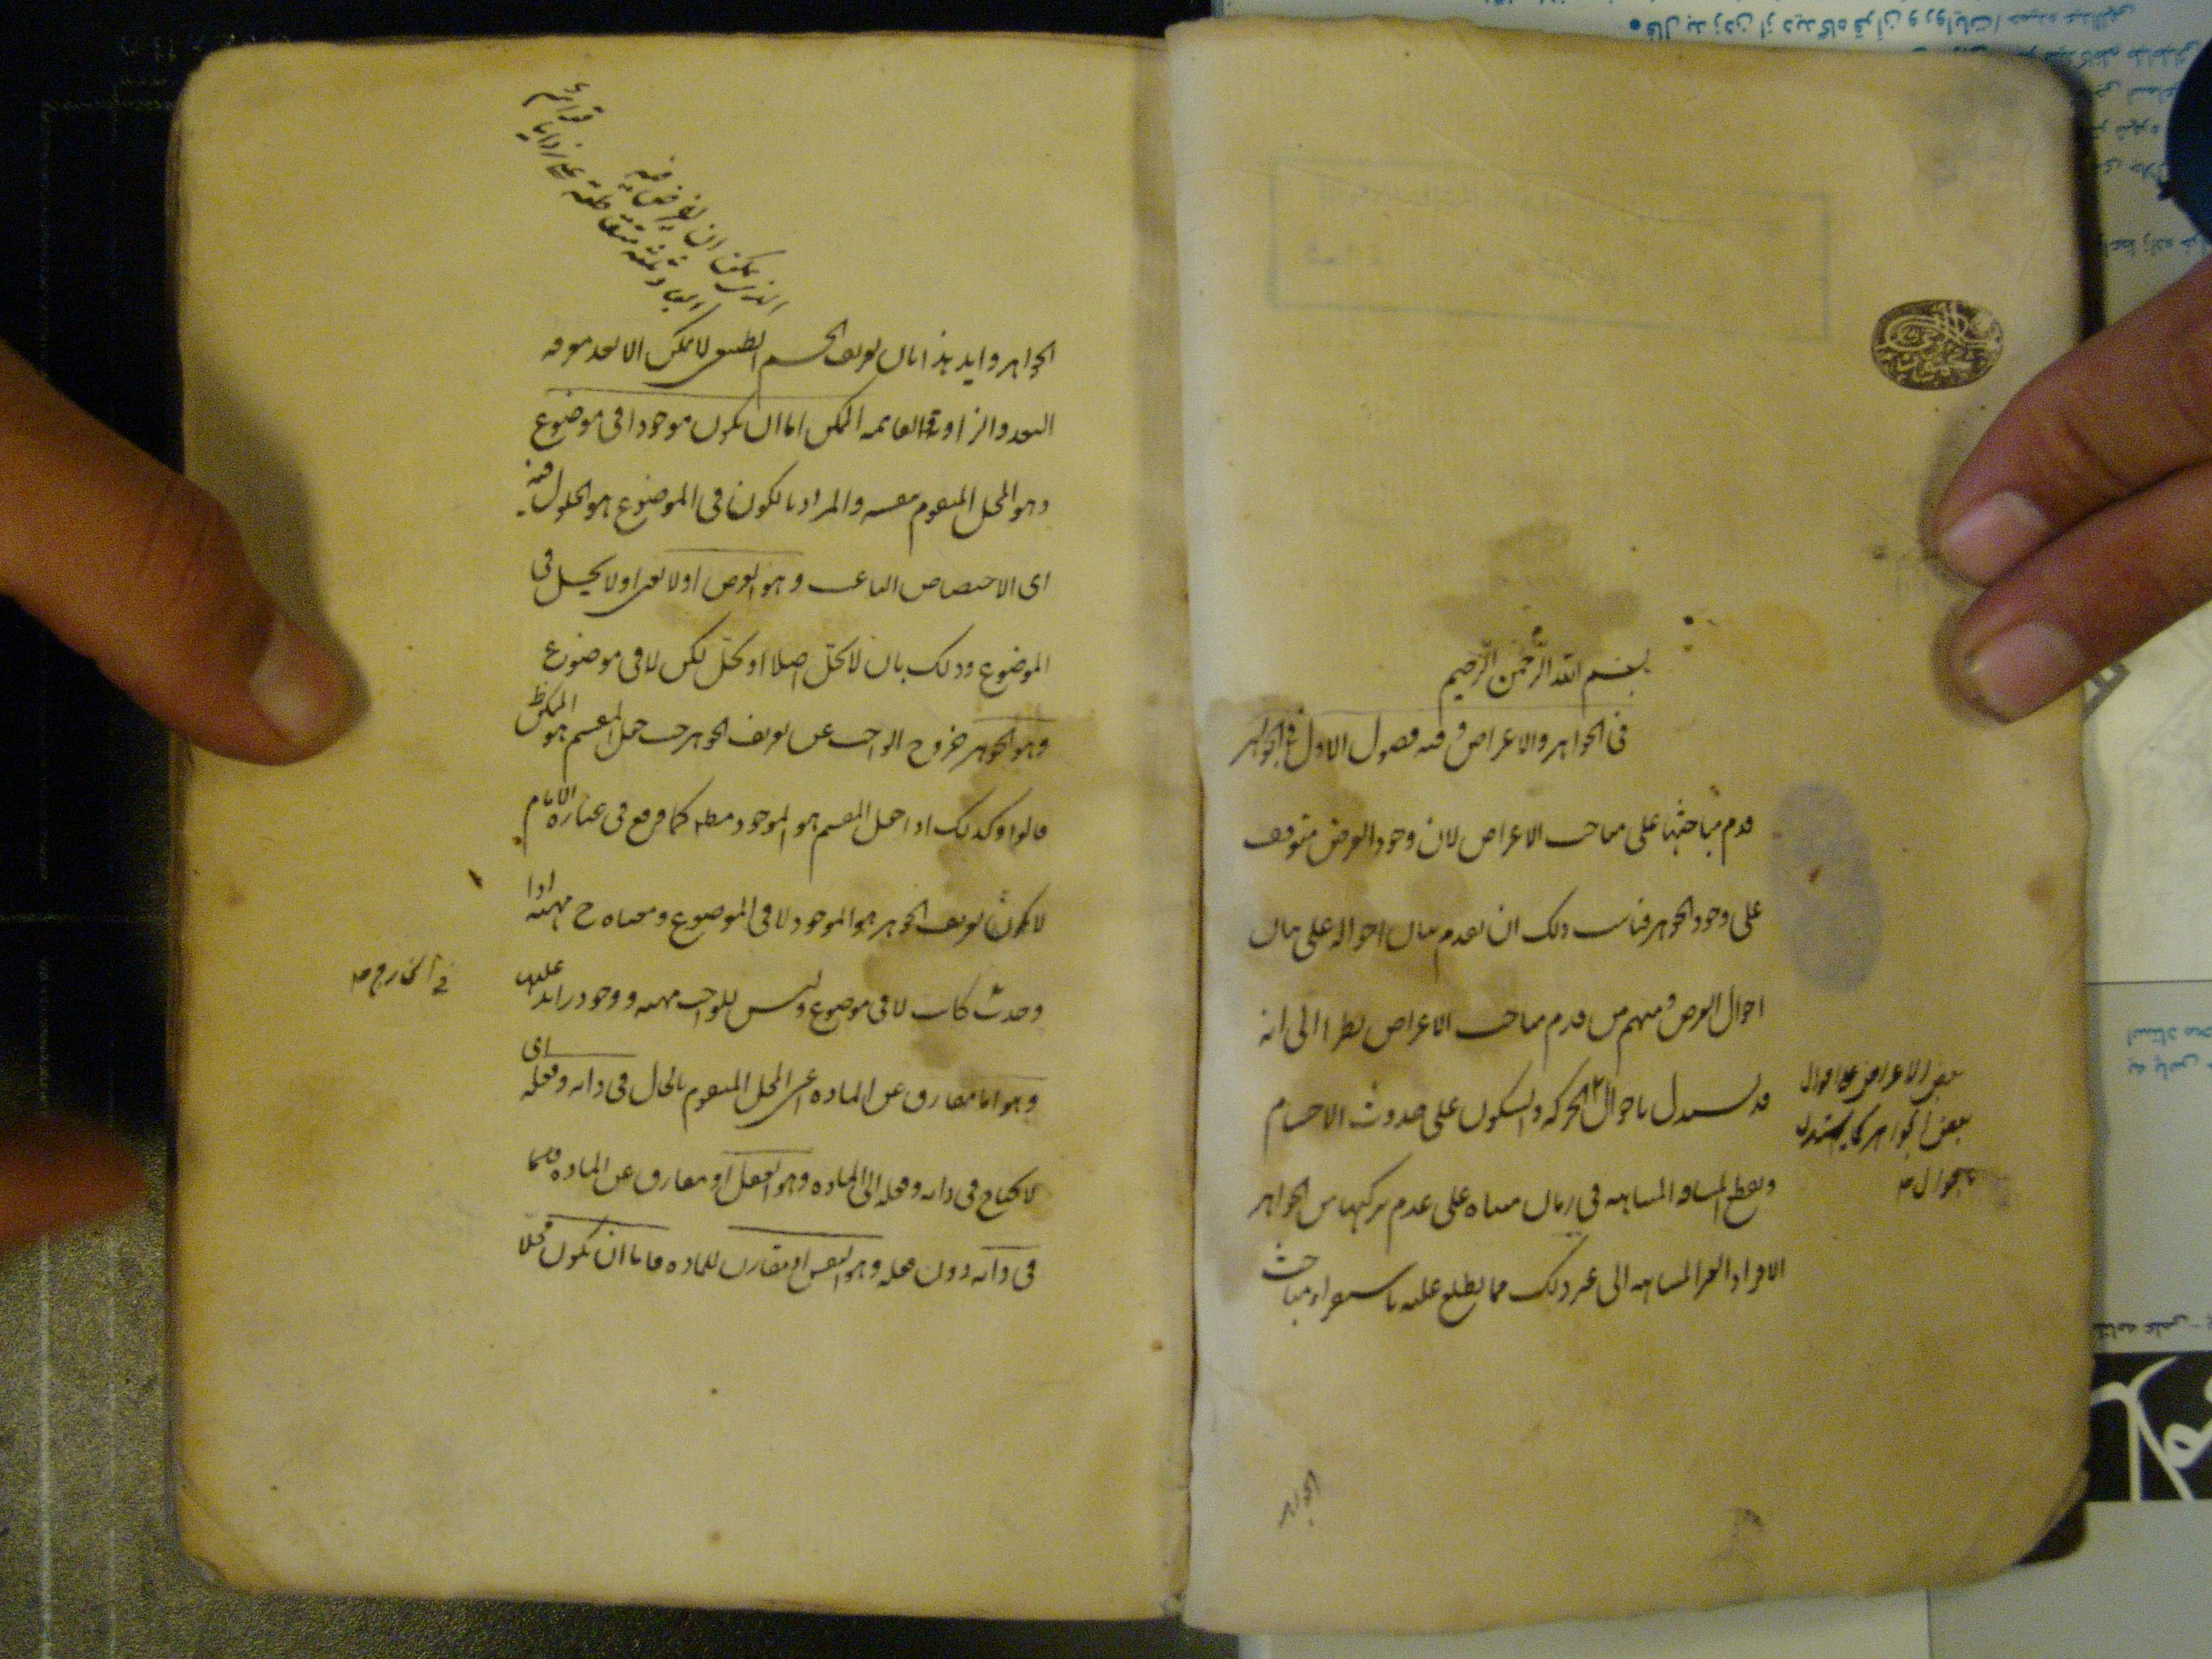 بسم الله الرحمن الرحيم
فى الجواهر والاعراض وفيه فصول الاول فى الجواهر
قدم مباحثها على مباحث الاعراض لان وجود العرض متوقف
على وجود الجوهر فناسب ذلك ان يقدم بيان احواله على بيان
احوال العرض ومنهم من قدم مباحث الاعراض نظرا الى انه
قد يستدل باحوال الحركه والسكون على حدوث الاجسام
وبقطع المسافه المتناهيه فى زمان متناه على عدم تركبها من الجواهر
الافراد الغير المتناهيه الى غير ذلك مما يطلع عليه باستقراء مباحث
بعض الاعراض على احوال
بعض الجواهر كما يستدل
باحوال صح
الجواهر
الذى يمكن ان يفرض فيه
ابعاد ثلثه متقاطعه على زوايا
قوائم
الجواهر وايد هذا بان تعريف الجسم الطبيعى لا يمكن الا بعد معرفه
البعد والزاويه القائمه الممكن اما ان يكون موجودا فى موضوع
وهو المحل المتقوم بنفسه والمراد بالكون فى الموضوع هو الحلول فيه
اى الاختصاص الناعت وهو العرض اولا يعنى اولا يحل فى
الموضوع وذلك بان لا يحل اصلا او يحل لكن لا فى موضوع
وهو الجوهر خروج الواجب عن تعريف الجوهر حيث جعل المقسم هو الممكن ظ
قالوا وكذلك اذا جعل المقسم هو الموجود مطلقا كما وقع فى عباره الامام
لا يكون تعريف الجوهر هو الموجود لا فى الموضوع ومعناه ح مهيه اذا
وجدت كانت لا فى موضوع وليس للواجب مهيه ووجود زايد عليها
فى الخارج صح
وهو اما مفارق عن الماده اعنى المحل المتقوم بالحال فى ذاته وفعله اى
لا يحتاج فى ذاته وفعله الى الماده وهو العقل او مفارق عن الماده
فى ذاته دون فعله وهو النفس او مقارن للماده فاما ان يكون محلا